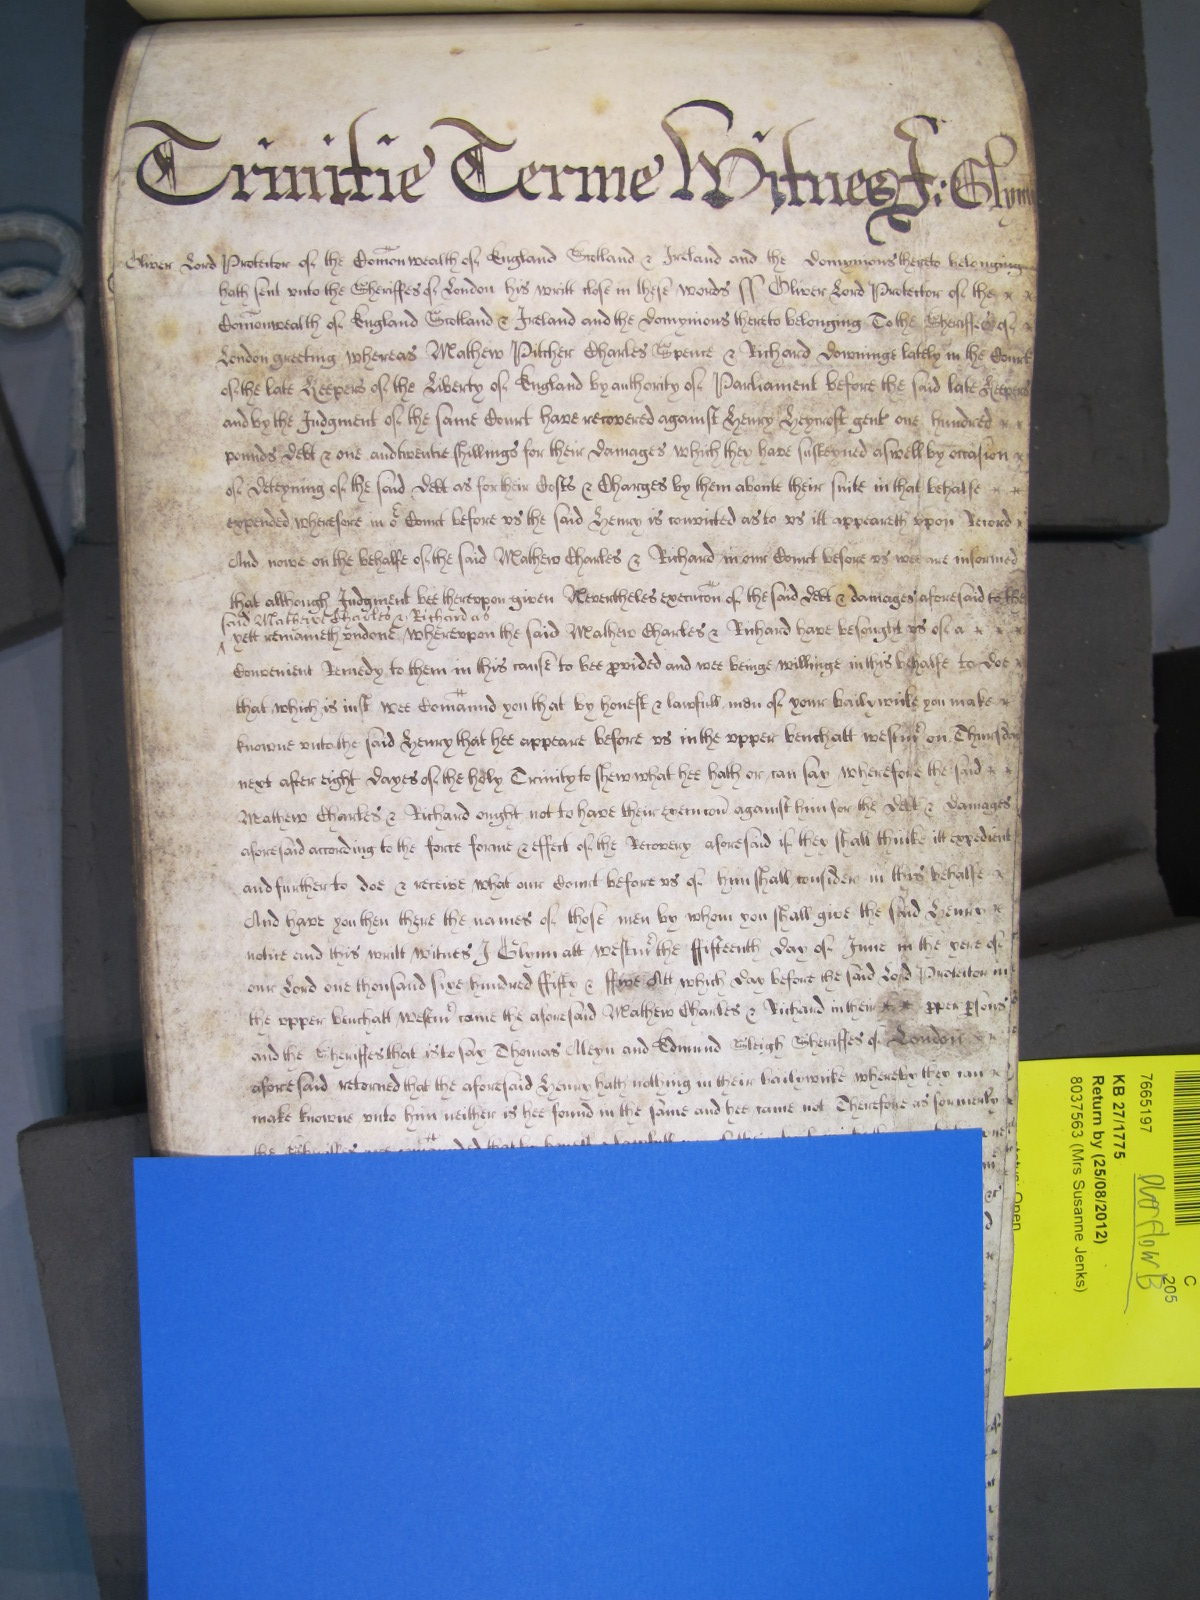 Trinitie Terme Witnes J: Glynn
Oliver Lord Protector of the Comonwealth of England Scotland & Ireland and the domynions thereto belonging
hath sent unto the Sheriffes of London his writt close in these words ss Oliver Lord Protector of the
Comonwealth of England Scotland & Ireland and the domynions thereto belonging To the Sheriffes of
London greeting whereas Mathew Pitcher Charles Spence & Richard Downinge lately in the Court
of the late Keepers of the Liberty of England by authority of Parliament before the said late Keepers
and by the Judgment of the same Court have recovered against Henry Heycroft gent one hundred
pounds debt & one and twentie shillings for their damages which they have susteyned aswell by occasion
of deteyning of the said debt as for their Costs & Charges by them aboute their suite in that behalfe
expended wherefore in or Court before us the said Henry is convicted as to us itt appeareth upon Record
And nowe on the behalfe of the said Mathew Charles & Richard in our Court before us wee are informed
that although Judgment bee thereupon given Nevertheles execucon of the said debt & damages aforesaid to the
said Mathewe Charles & Richard as
yett remaineth undone whereupon the said Mathew Charles & Richard have besought us of a
Convenient Remedy to them in this cause to bee pvided and wee beinge willinge in this behalfe to doe
that which is just wee Comannd you that by honest & lawfull men of your bailywicke you make
knowne unto the said Henry that hee appeare before us in the upper bench att westmr on Thursday
next after eight dayes of the holy Trinity to shew what hee hath or can say wherefore the said
Mathew Charles & Richard ought not to have their execucon against him for the debt & damages
aforesaid according to the force forme & effect of the Recovery aforesaid if they shall thinke itt expedient
and further to doe & receive what our Court before us of him shall consider in this behalfe
And have you then there the names of those men by whom you shall give the said Henry
notice and this writt witnes J Glynn att westmr the ffifteenth day of June in the yere of
our Lord one thousand sixe hundred ffifty & ffive Att which day before the said Lord Protector in
the upper bench att westmr came the aforesaid Mathew Charles & Richard in their pper psons
and the Sheriffes that is to say Thomas Aleyn and Edmund Sleigh Sheriffes of London
aforesaid retorned that the aforesaid Henry hath nothing in their bailywicke whereby they can
make knowne unto him neither is hee found in the same and hee came not Therefore as formerly
the Sheriffes are
C
205
7665197
Overflow B
KB 27/1775
Return by (25/08/2012)
8037563 (Mrs Susanne Jenks)
Open